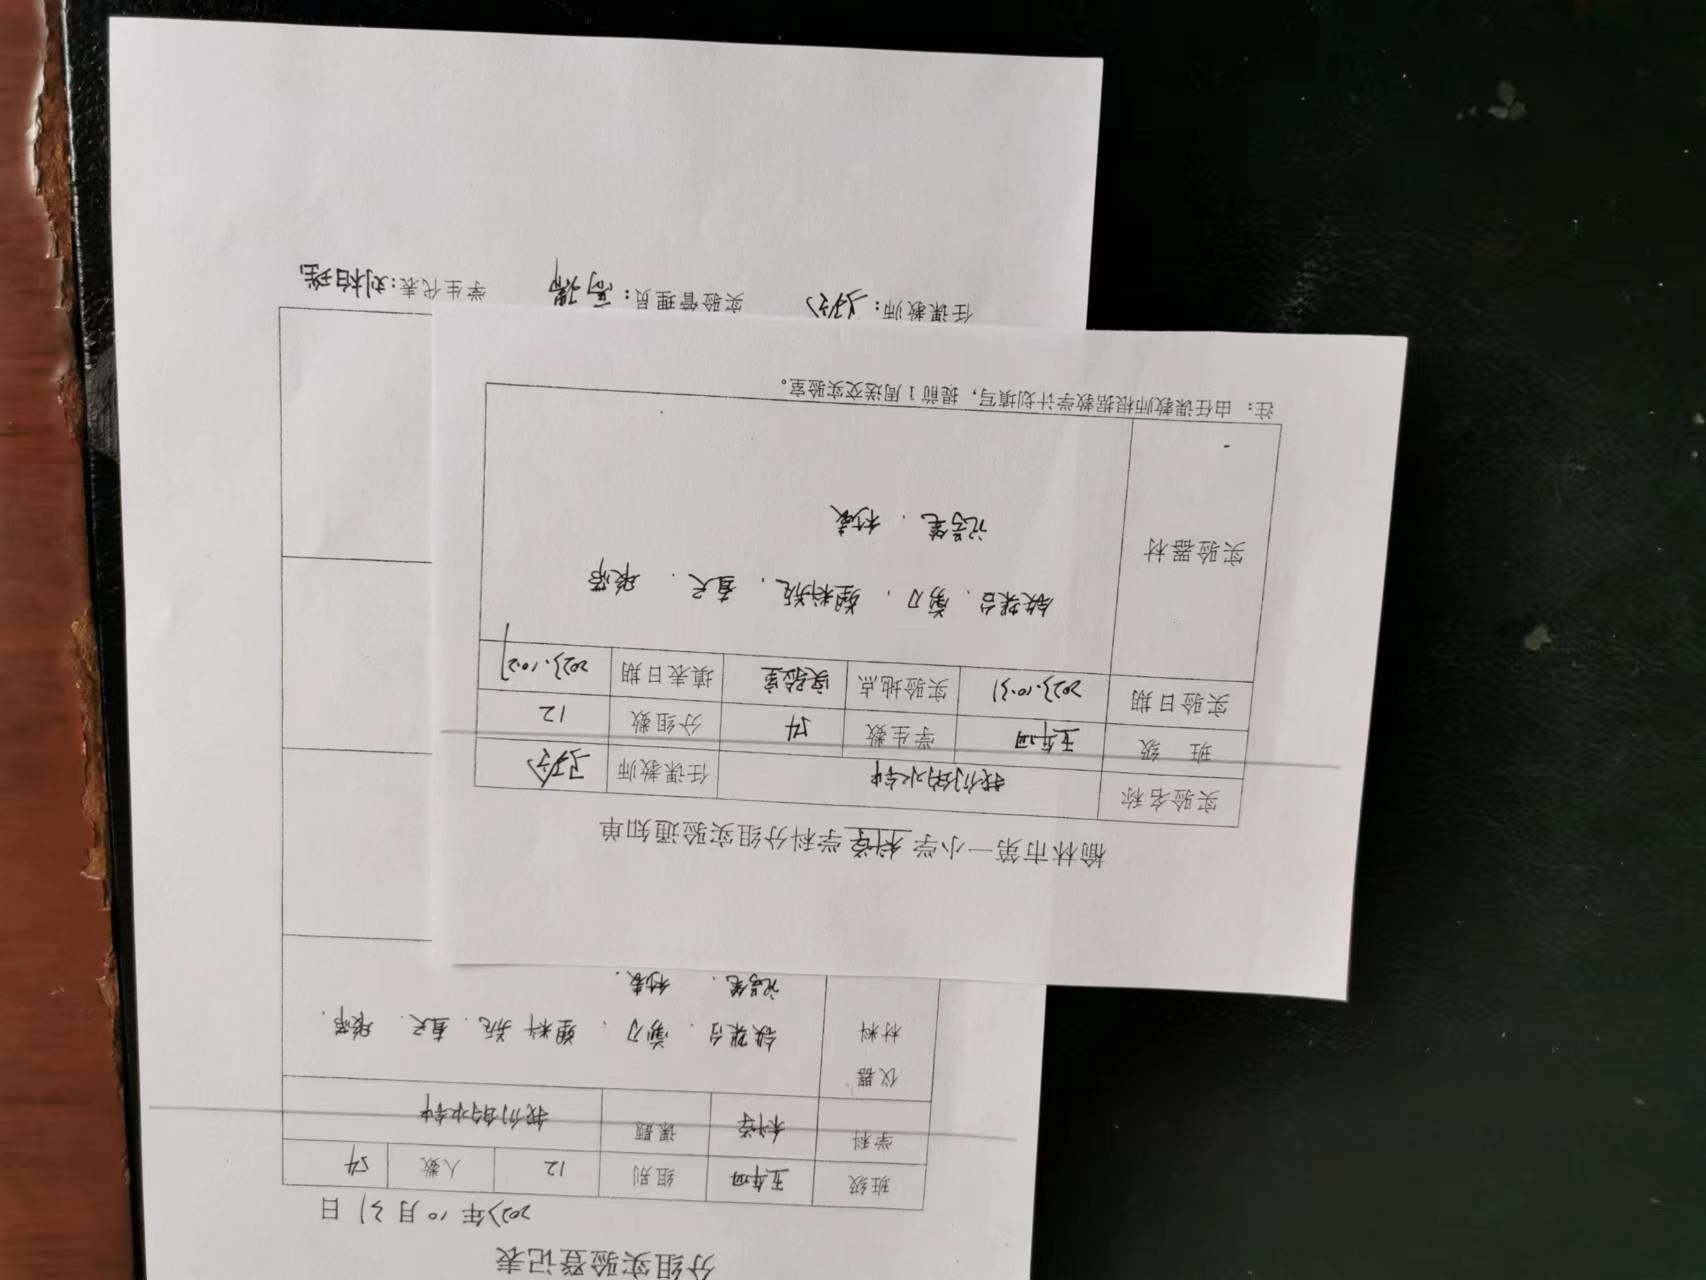 榆林市第一小学 科学 学科分组实验通知单
实验名称 我们的水钟 任课教师
班 级 五年四 学生数 54 分组数 12
实验日期 2023.10.31 实验地点 实验室 填表日期 2023.10.21
实验器材 铁架台、剪刀、塑料瓶、直尺、胶带
记号笔、秒表
注：由任课教师根据教学计划填写，提前1周送交实验室。
分组实验登记表
2023年10月31日
班级 五年四 组别 12 人数 54
学科 科学 课题 我们的水钟
仪器
材料 铁架台、剪刀、塑料瓶、直尺、胶带、
记号笔、秒表.
任课教师： 实验管理员： 学生代表：刘柏